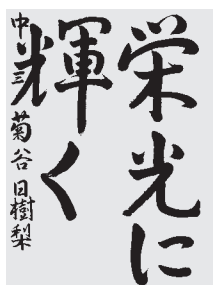 栄光に
輝く
中三 菊谷日樹梨